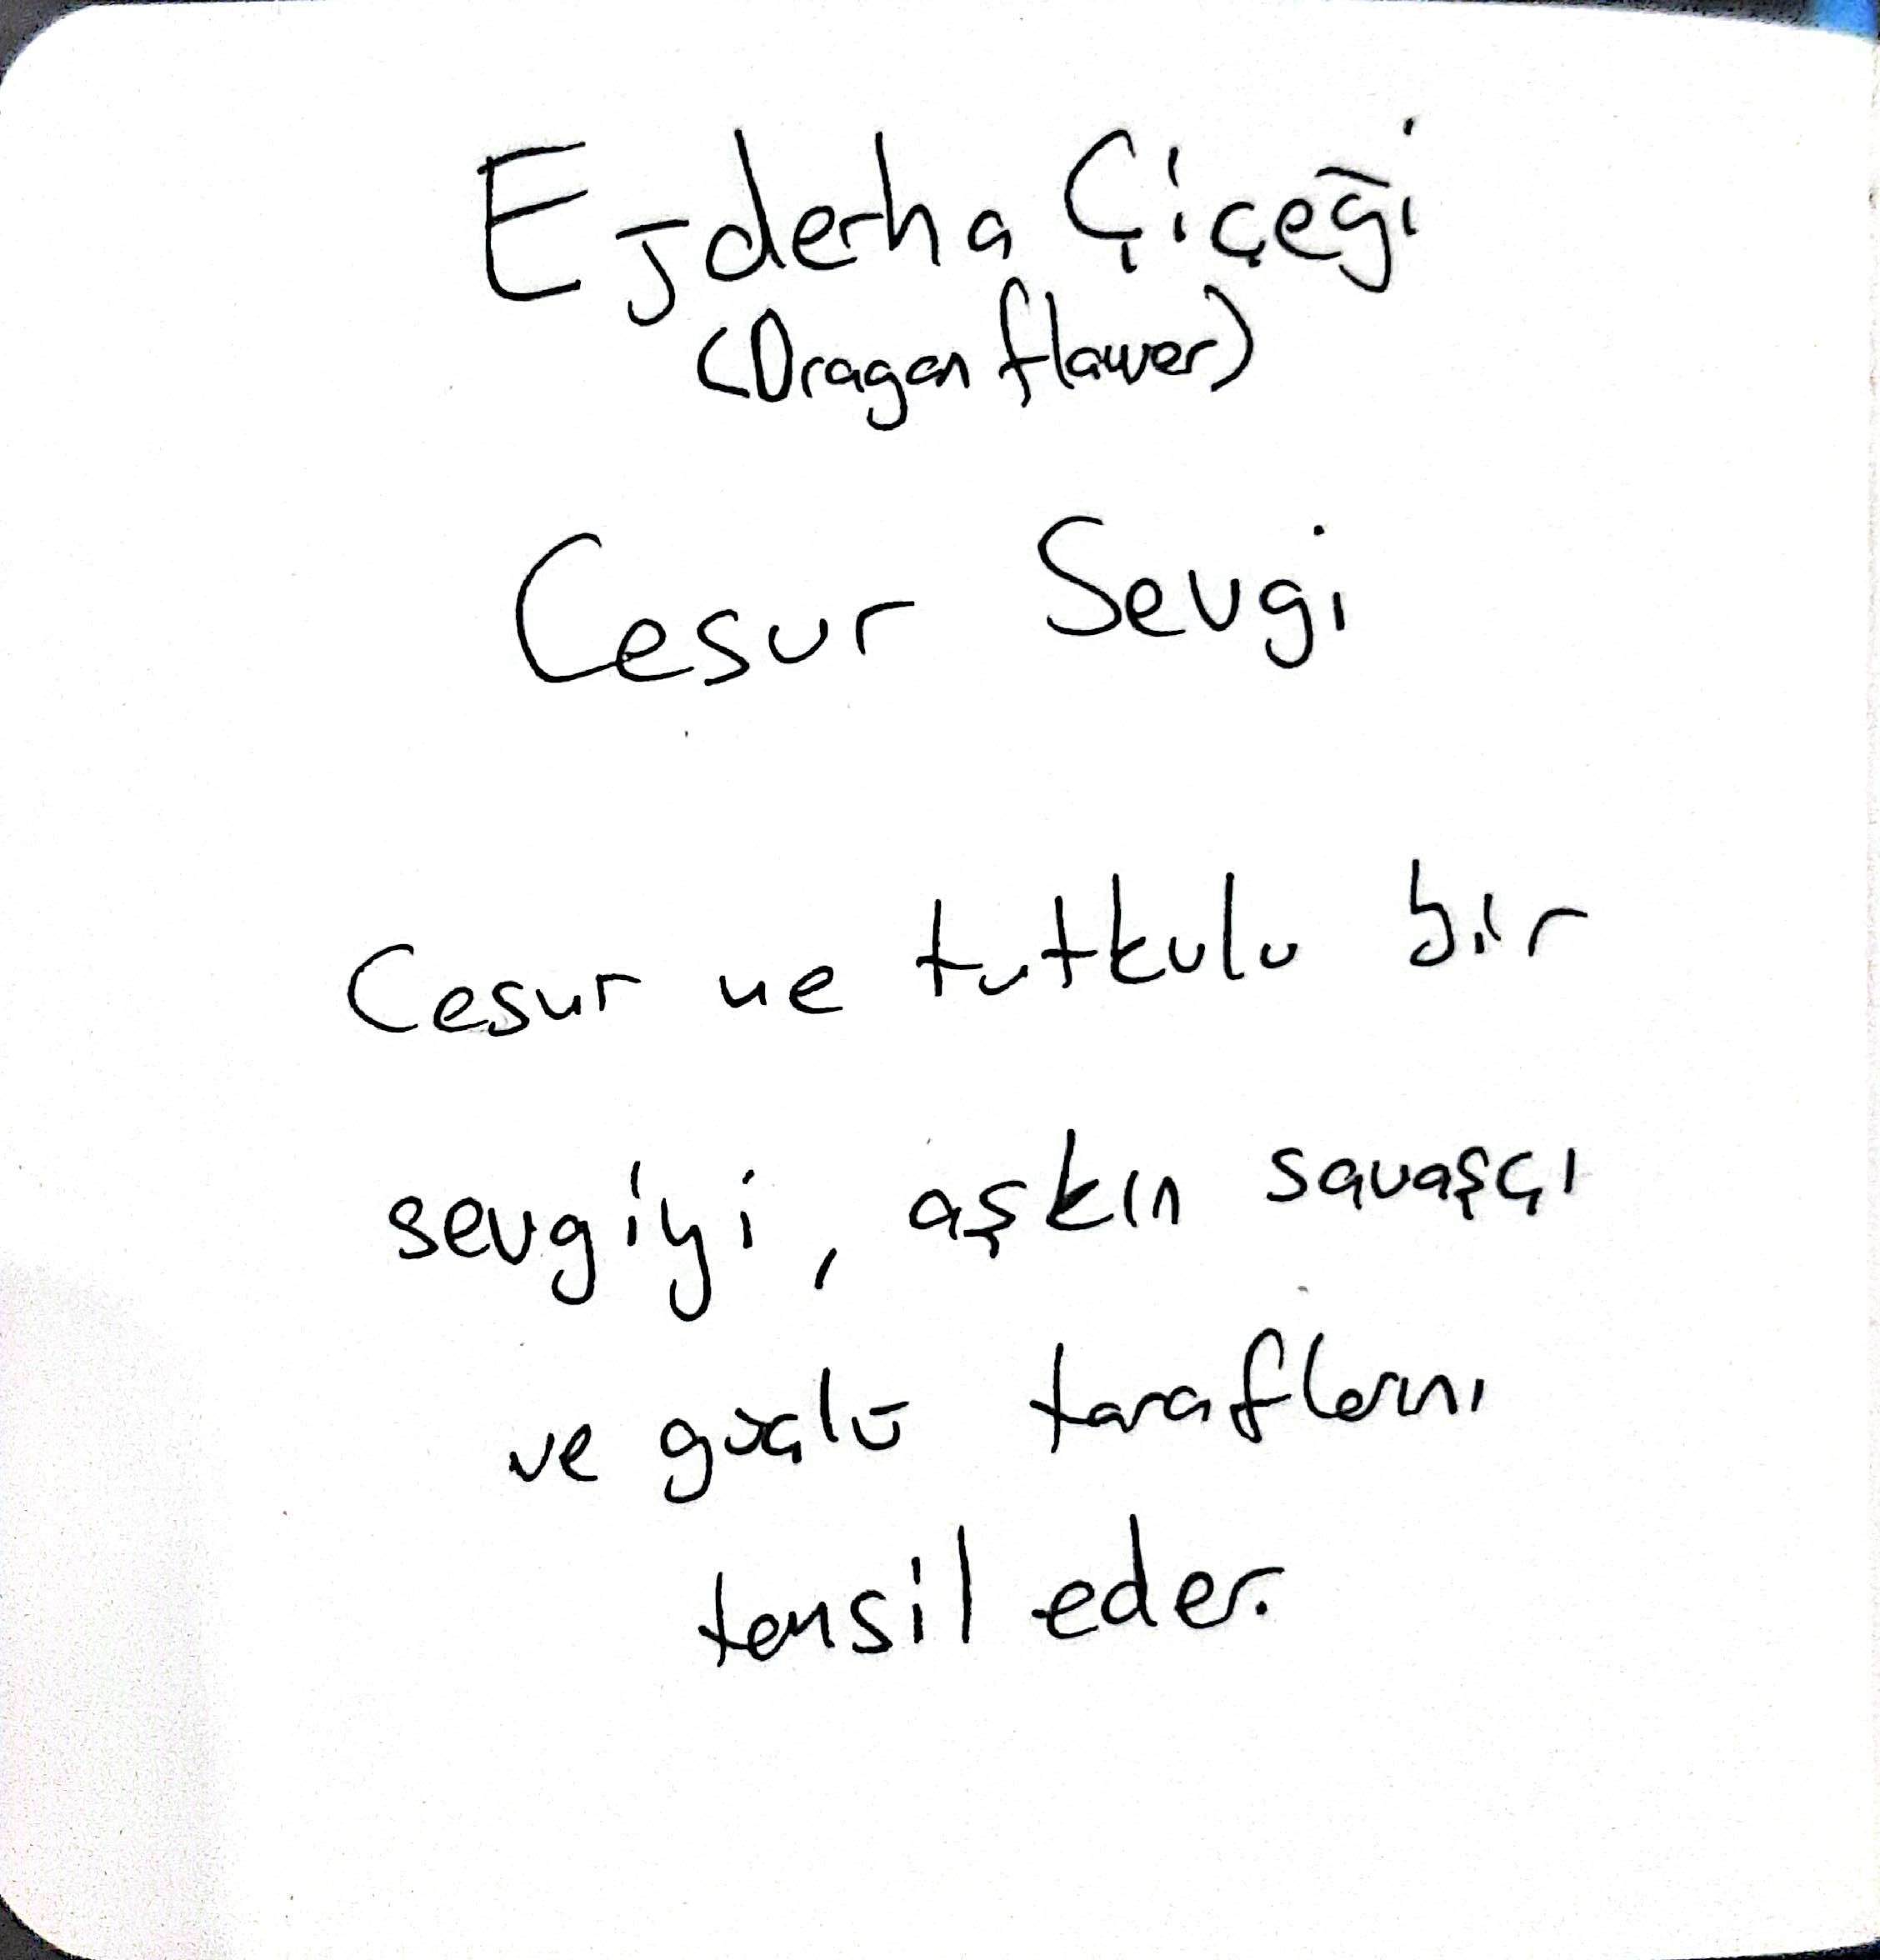 Ejderha Çiçeği
(Dragon flower)
Cesur Sevgi
Cesur ve tutkulu bir
sevgiyi, aşkın savaşçı
ve güçlü taraflarını
temsil eder.